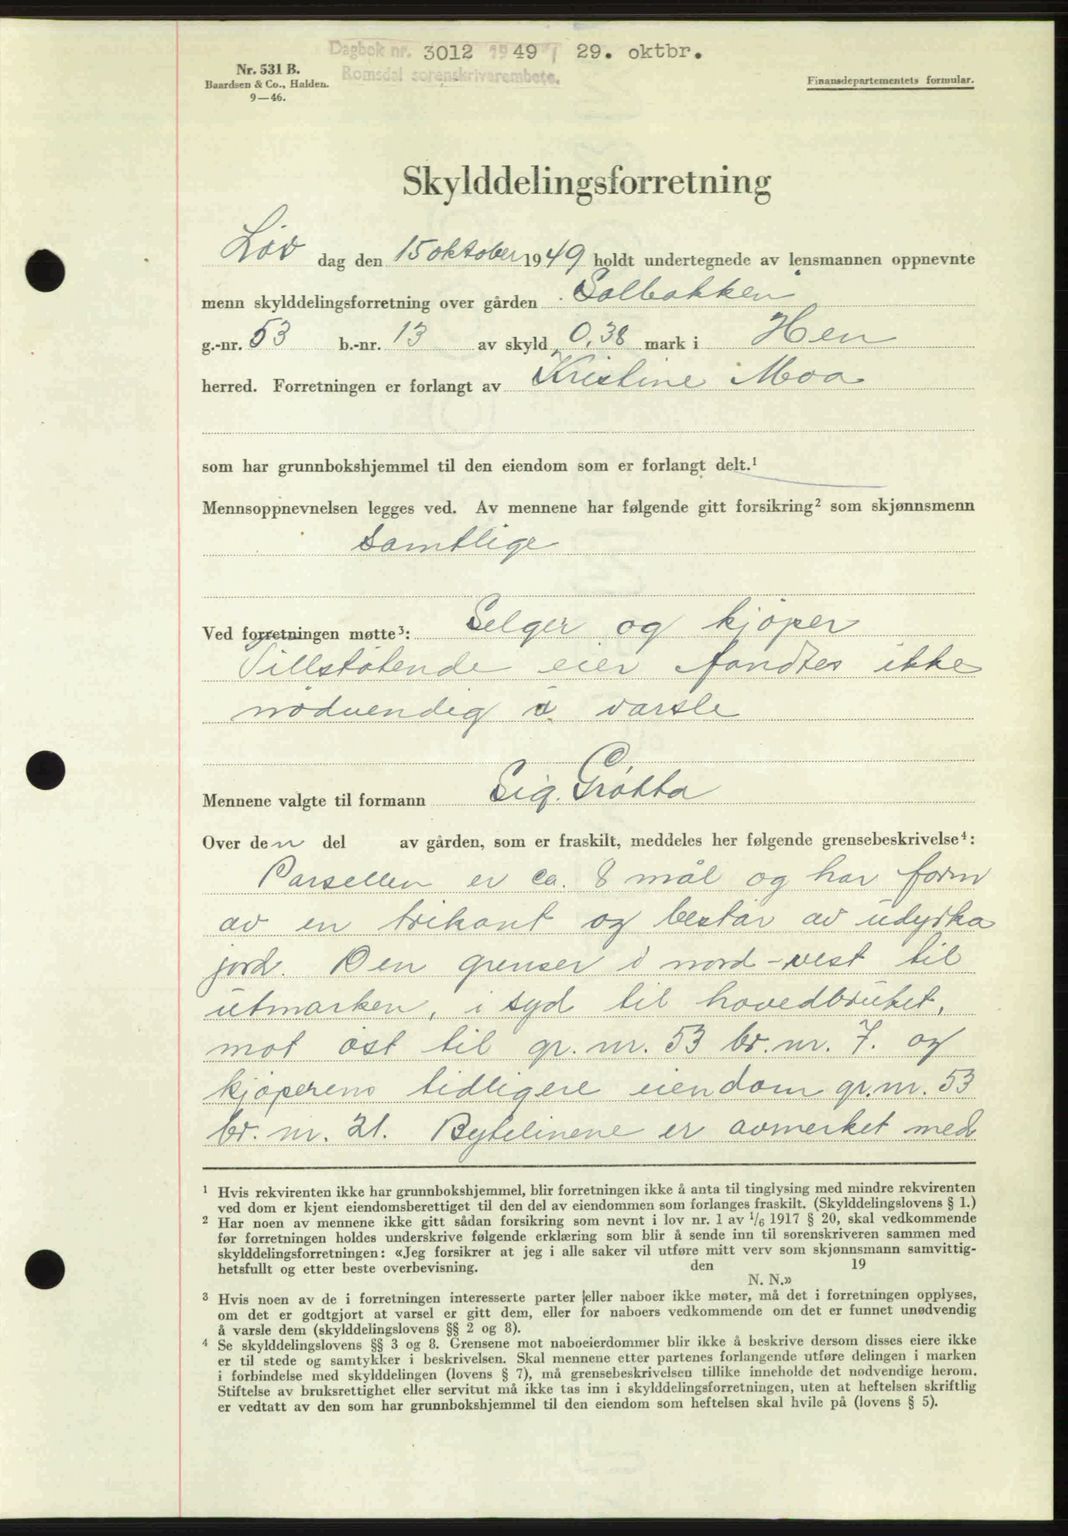 Dagbok nr. 3012 1949 29. oktbr.
Romsdal sorenskriverembete.
Nr. 531 B.
Baardsen & Co., Halden.
9—46.
Finansdepartementets formular.
Skylddelingsforretning
Lør dag den 15 oktober 1949 holdt undertegnede av lensmannen oppnevnte
menn skylddelingsforretning over gården Solbakken
g.-nr. 53 b.-nr. 13 av skyld 0,38 mark i Hen
herred. Forretningen er forlangt av Kristine Moa
som har grunnbokshjemmel til den eiendom som er forlangt delt.¹
Mennsoppnevnelsen legges ved. Av mennene har følgende gitt forsikring² som skjønnsmenn
Samtlige
Ved forretningen møtte³: Selger og kjøper
Tillstøtende eier fandtes ikke
nødvendig å varsle
Mennene valgte til formann Sig. Grøtta
Over den del av gården, som er fraskilt, meddeles her følgende grensebeskrivelse⁴:
Parsellen er ca. 8 mål og har form
av en trikant og består av udyrka
jord. Den grenser i nord-vest til
utmarken, i syd til hovedbruket,
mot øst til gr. nr. 53 br. nr. 7. og
kjøperens tidligere eiendom gr. nr. 53
br. nr. 21. Bytelinene er avmerket med
¹ Hvis rekvirenten ikke har grunnbokshjemmel, blir forretningen ikke å anta til tinglysing med mindre rekvirenten
ved dom er kjent eiendomsberettiget til den del av eiendommen som forlanges fraskilt. (Skylddelingslovens § 1.)
² Har noen av mennene ikke gitt sådan forsikring som nevnt i lov nr. 1 av 1/6 1917 § 20, skal vedkommende
før forretningen holdes underskrive følgende erklæring som blir å sende inn til sorenskriveren sammen med
skylddelingsforretningen: «Jeg forsikrer at jeg i alle saker vil utføre mitt verv som skjønnsmann samvittig-
hetsfullt og etter beste overbevisning. den 19
N. N.»
³ Hvis noen av de i forretningen interesserte parter eller naboer ikke møter, må det i forretningen opplyses,
om det er godtgjort at varsel er gitt dem, eller for naboers vedkommende om det er funnet unødvendig
å varsle dem (skylddelingslovens §§ 2 og 8).
⁴ Se skylddelingslovens §§ 3 og 8. Grensene mot naboeierdommer blir ikke å beskrive dersom disses eiere ikke
er til stede og samtykker i beskrivelsen. Skal mennene etter partenes forlangende utføre delingen i marken
i forbindelse med skylddelingen (lovens § 7), må grensebeskrivelsen tillike inneholde det nødvendige herom.
Stiftelse av bruksrettighet eller servitut må ikke tas inn i skylddelingsforretningen, uten at heftelsen skriftlig
er vedtatt av den som har grunnbokshjemmel til den eiendom som heftelsen skal hvile på (lovens § 5).